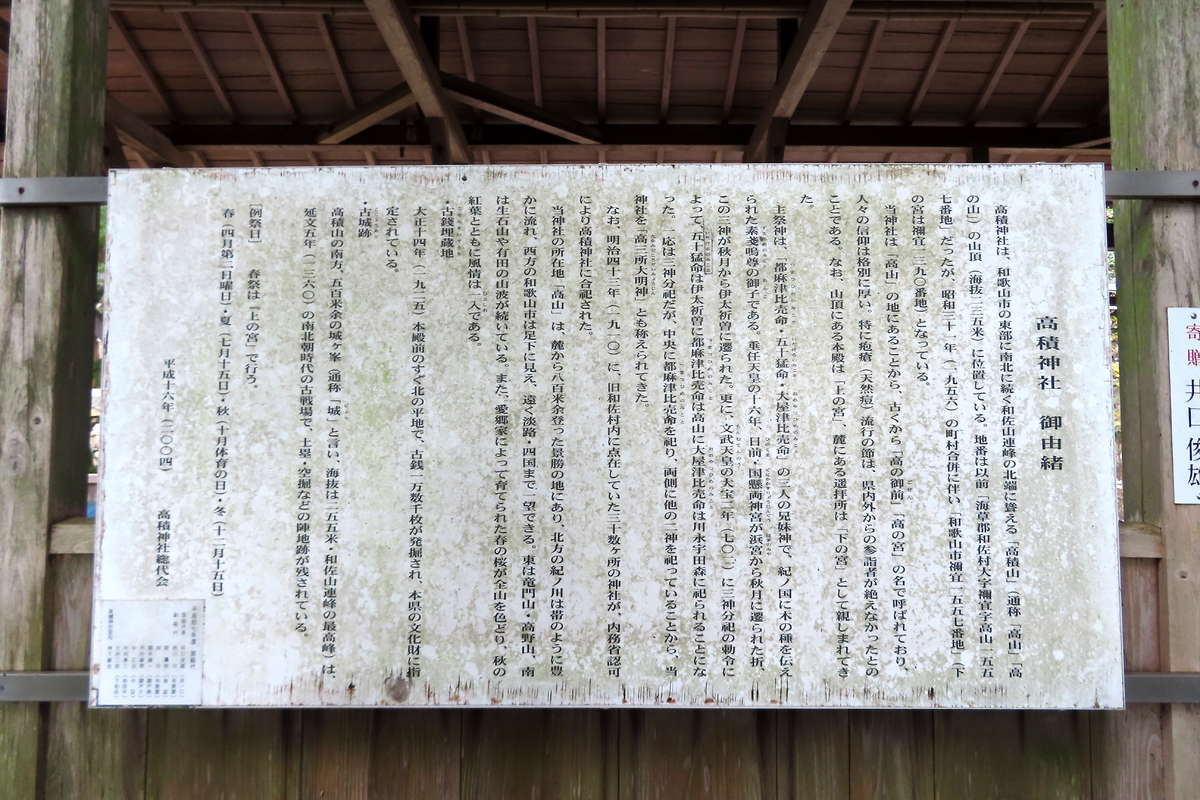 高積神社　御由緒
高積神社は、和歌山市の東部に南北に続く和佐山連峰の北端に聳える「高積山」（通称「高山」「高
の山」）の山頂（海抜二三五米）に位置している。地番は以前「海草郡和佐村大字禰宜字高山一五五
七番地」だったが、昭和三十一年（一九五六）の町村合併に伴い「和歌山市禰宜一五五七番地」（下
の宮は禰宜一三九〇番地）となっている。
当神社は「高山」の地にあることから、古くから「高の御前」「高の宮」の名で呼ばれており、
人々の信仰は格別に厚い。特に疱瘡（天然痘）流行の節は、県内外からの参詣者が絶えなかったとの
ことである。なお、山頂にある本殿は「上の宮」、麓にある遥拝所は「下の宮」として親しまれてき
た。
主祭神は、「都麻津比売命・五十猛命・大屋津比売命」の三人の兄妹神で、紀ノ国に木の種を伝え
られた素戔嗚尊の御子である。垂仁天皇の十六年、日前・国懸両神宮が浜宮から秋月に遷られた折、
この三神が秋月から伊太祈曽に遷られた。更に、文武天皇の大宝二年（七〇二）に三神分祀の勅令に
よって、五十猛命は伊太祈曽に都麻津比売命は高山に大屋津比売命は川永宇田森に祀られることにな
った。一応は三神分祀だが、中央に都麻津比売命を祀り、両側に他の二神を祀っていることから、当
神社を「高三所大明神」とも称えられてきた。
なお、明治四十三年（一九一〇）に、旧和佐村内に点在していた三十数ヶ所の神社が、内務省認可
により高積神社に合祀された。
当神社の所在地「高山」は、麓から八百米余登った景勝の地にあり、北方の紀ノ川は帯のように豊
かに流れ、西方の和歌山市は足下に見え、遠く淡路・四国まで一望できる。東は竜門山・高野山、南
は生石山や有田の山波が続いている。また、愛郷家によって育てられた春の桜が全山を色どり、秋の
紅葉とともに風情は一入である。
・古銭埋蔵地
大正十四年（一九二五）本殿前のすぐ北の平地で、古銭一万数千枚が発掘され、本県の文化財に指
定されている。
・古城跡
高積山の南方、五百米余の城ヶ峯（通称「城」と言い、海抜は二五五米・和佐山連峰の最高峰）は、
延文五年（一三六〇）の南北朝時代の古戦場で、土塁・空掘などの陣地跡が残されている。
［例祭日］　春祭は「上の宮」で行う。
春（四月第二日曜日）・夏（七月十五日）・秋（十月体育の日）・冬（十二月十五日）
平成十六年（二〇〇四）　高積神社総代会
寄贈　井口俊雄